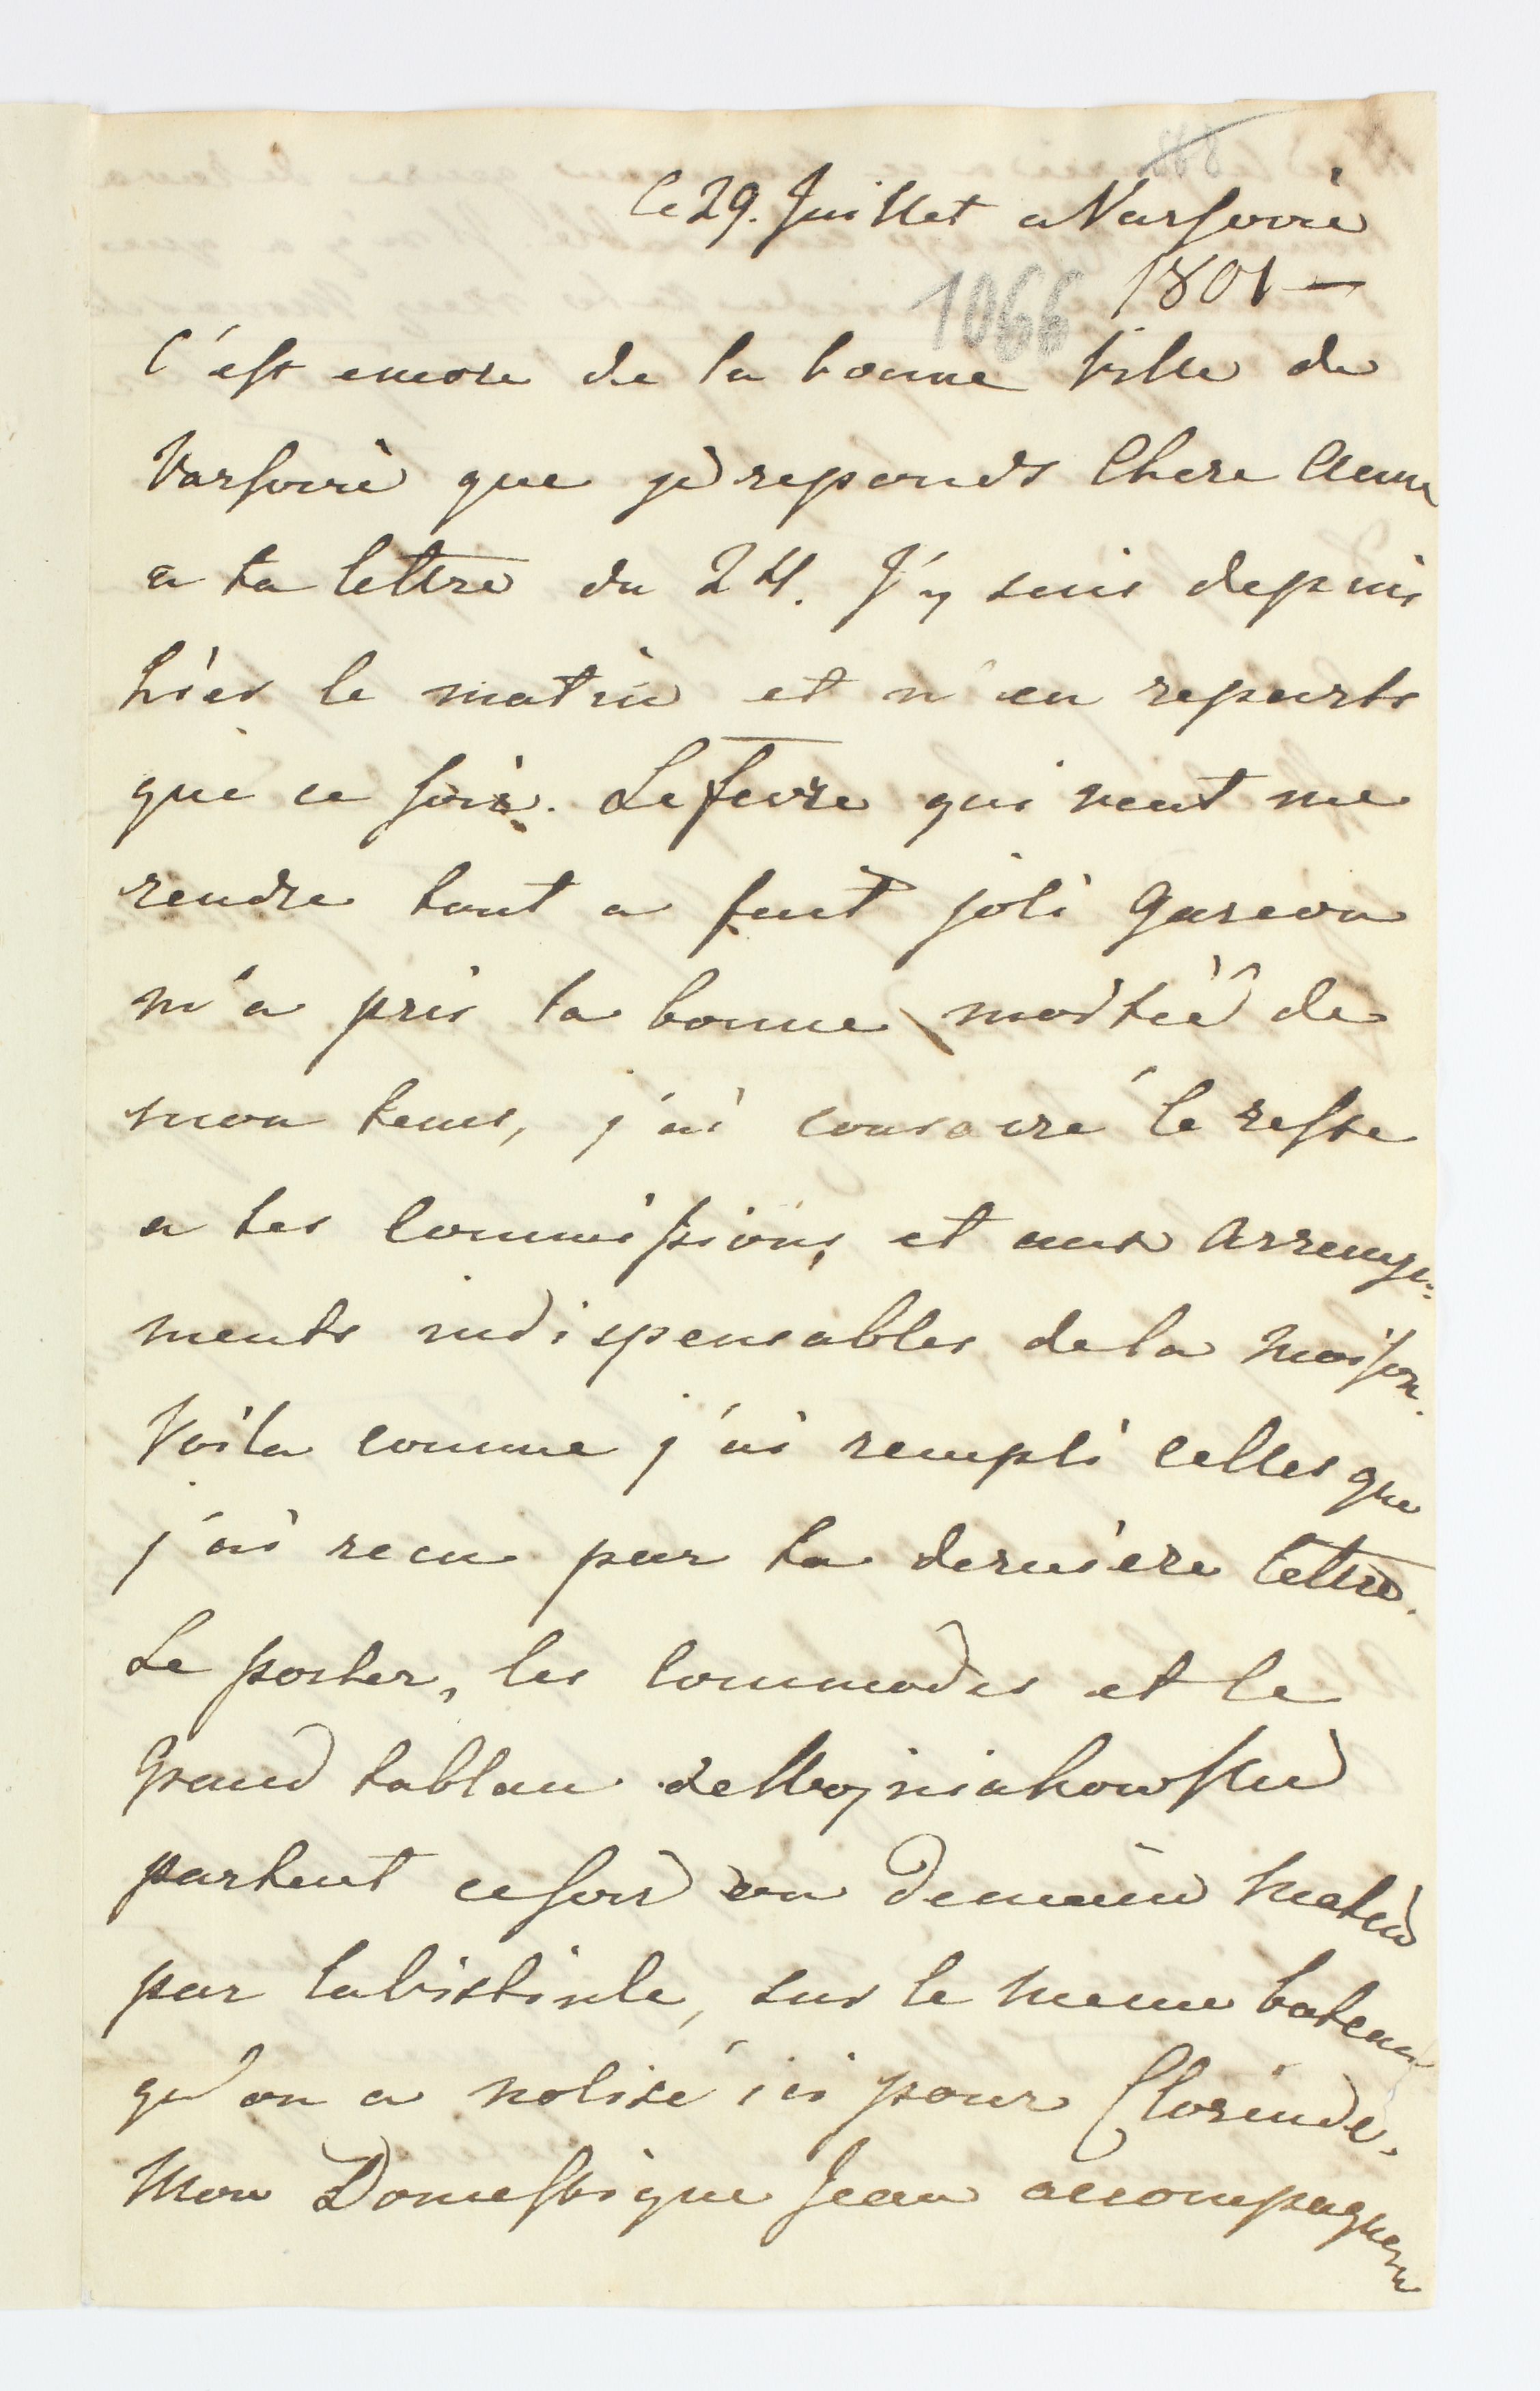 868
Le 29. Juillet a Varsovie
1066 1801 —
C'est encore de la bonne Ville de
Varsovie que je reponds Chere Anna
a ta lettre du 24. J'y suis depuis
hier le matin et n'en reparts
que ce soir. Lefevre qui veut me
rendre tout a fait joli garcon
m'a pris la bonne moitié de
mon tems, j'ai consacré le reste
a tes Commissions, et aux Arrange-
ments indispensables de la Maison.
Voila comme j'ai rempli celles que
j'ai recu par ta derniere lettre.
Le porter, les Commodes et le
Grand tableau de
partent ce soir ou Demain Matin
par la Vistule, sur le meme bateau
qu'on a nolisé ici pour Clorinde.
Mon Domestique Jean accompagnera